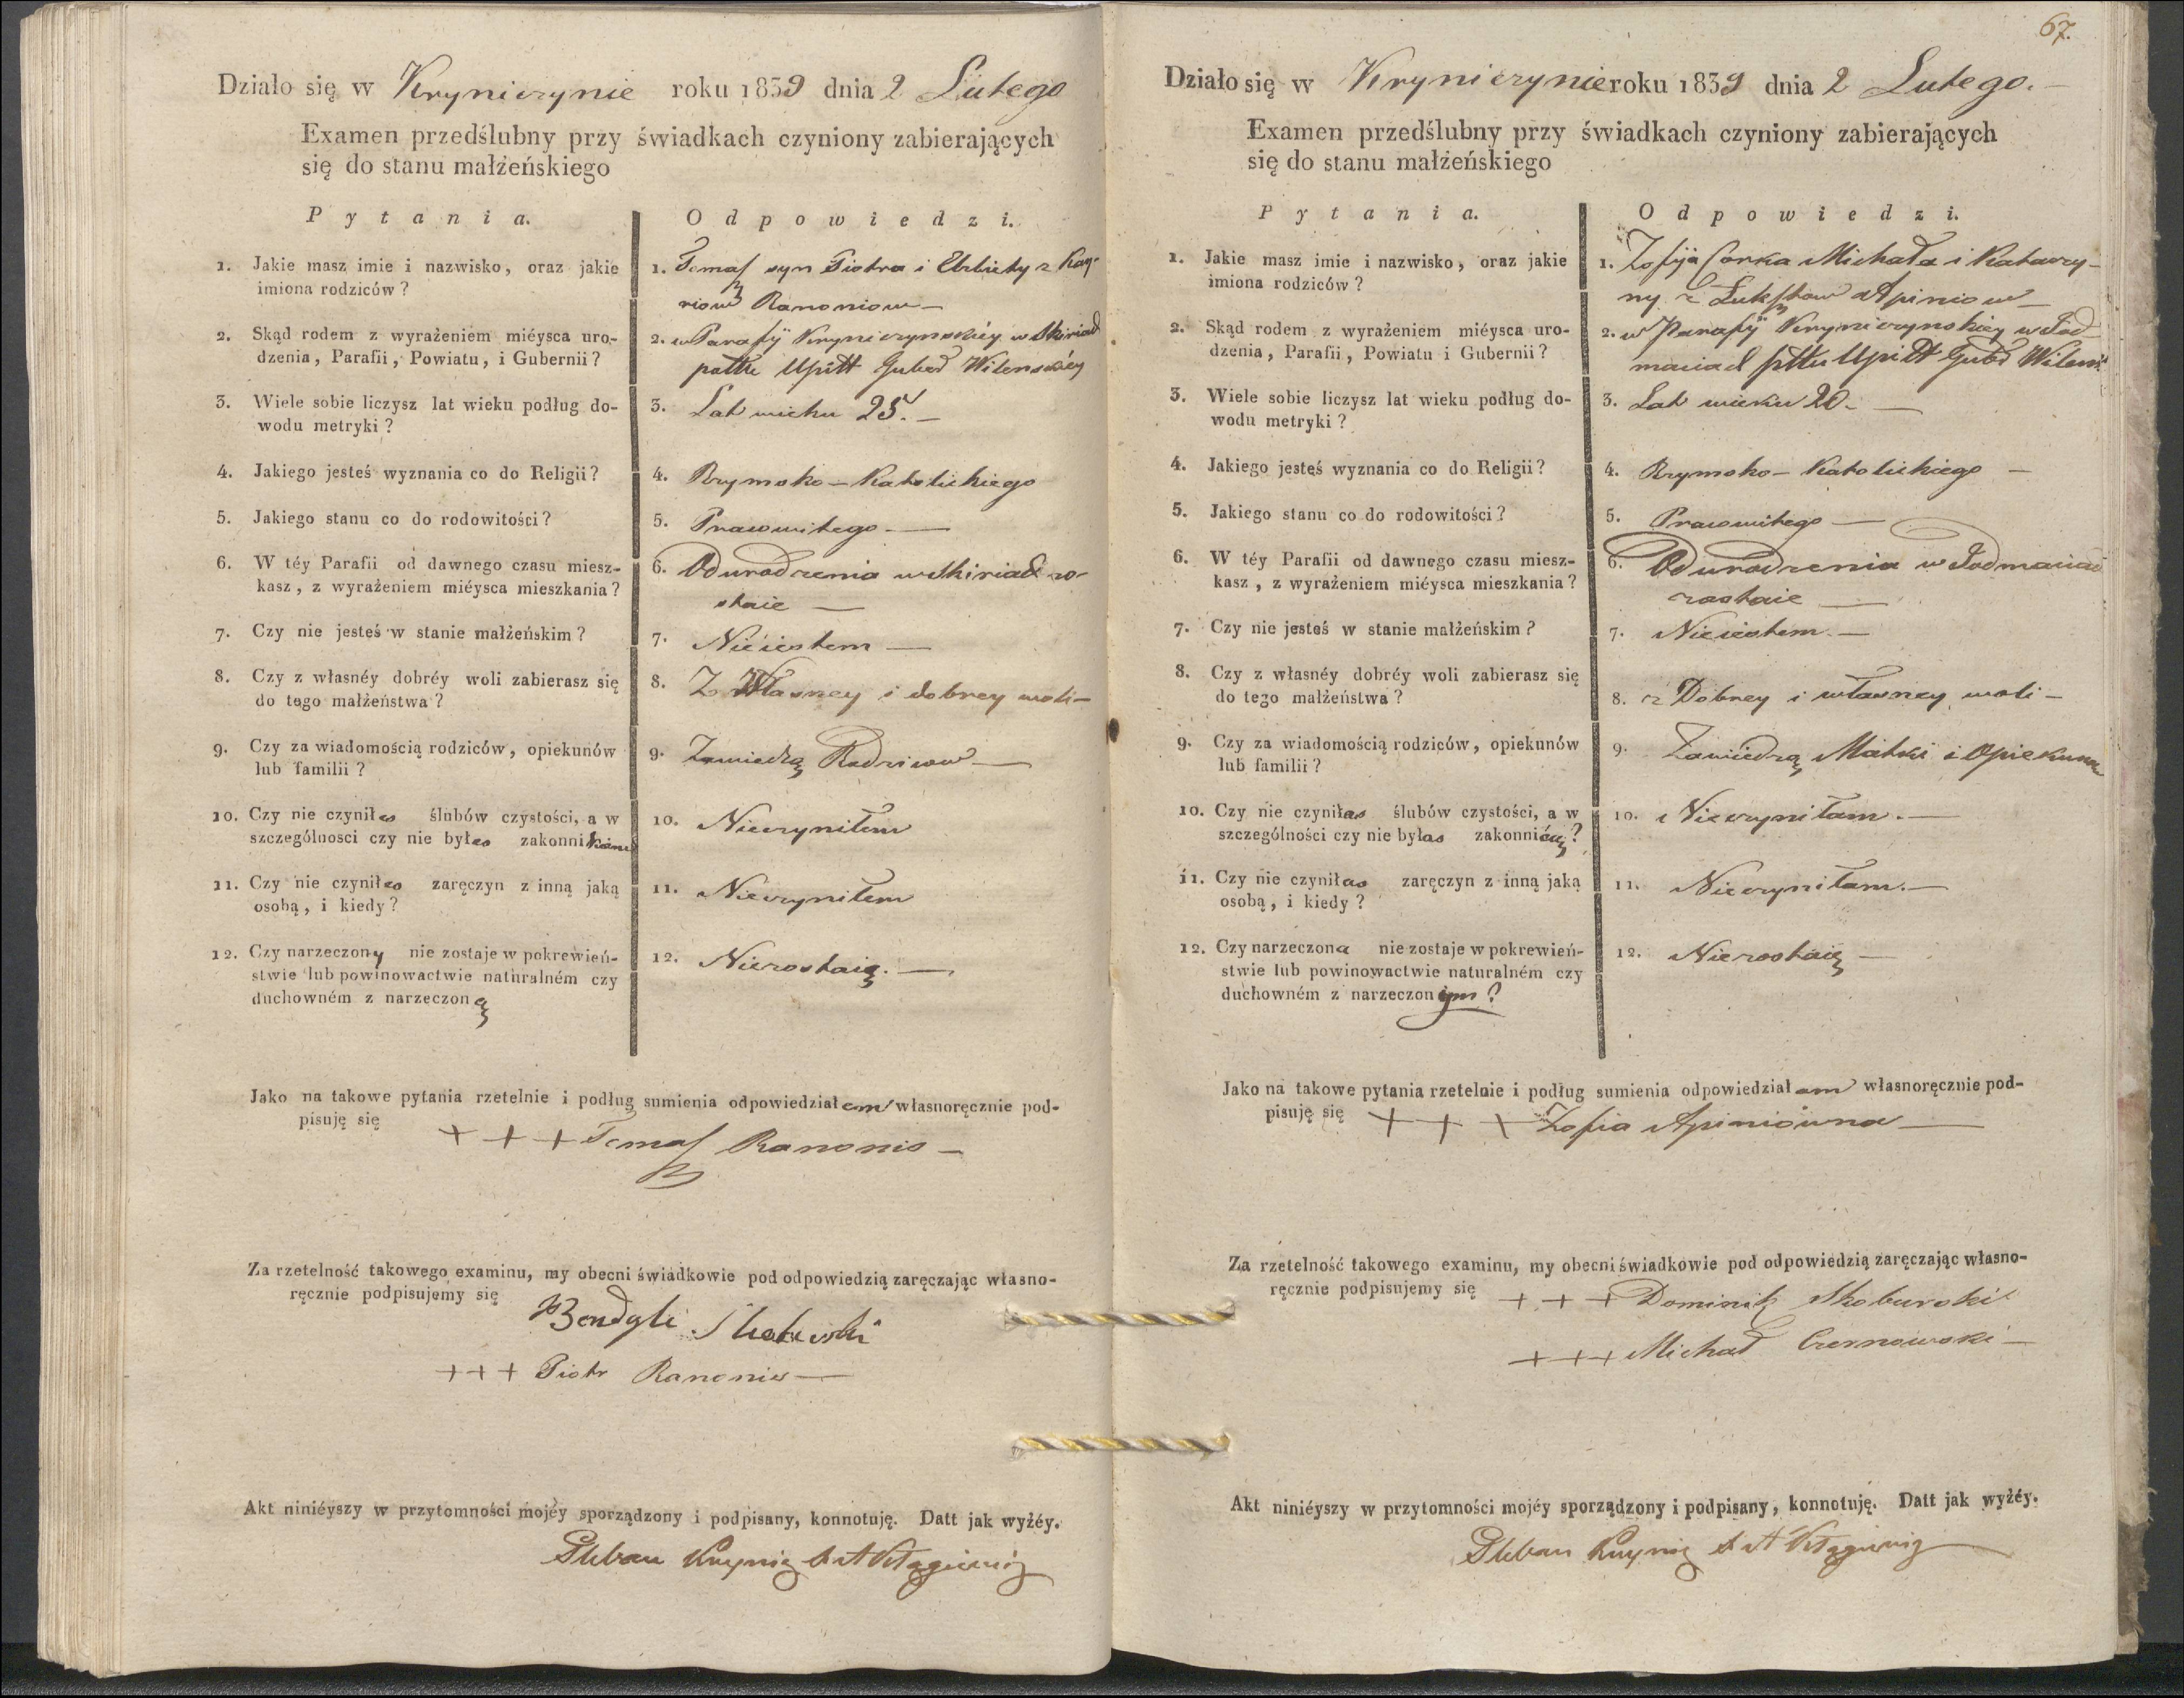 Działo się w Kryniczynie roku 1839 dnia 2 Lutego
Examen przedślubny przy świadkach czyniony zabierających
się do stanu małżeńskiego
Pytania.
Odpowiedzi.
1. Jakie masz imie i nazwisko, oraz jakie
imiona rodziców?
1. Tomasz syn Piotra i Elżbiety z
Ranoniow
2. Skąd rodem z wyrażeniem miéysca uro-
dzenia, Parafii, Powiatu, i Gubernii?
2. w Parafÿ Kryniczynskiéy w Skiriad
pottu Upitt Guber Wilenskiéy
3. Wiele sobie liczysz lat wieku podług do-
wodu metryki?
3. Lat wieku 25.
4. Jakiego jesteś wyznania co do Religii?
4. Rzymsko-Katolickiego
5. Jakiego stanu co do rodowitości?
5. Prawowitego
6. W téy Parafii od dawnego czasu miesz-
kasz, z wyrażeniem miéysca mieszkania?
6. Od urodzenia w Skiriad zo-
staie
7. Czy nie jesteś w stanie małżeńskim?
7. Nieiestem
8. Czy z własnéy dobréy woli zabierasz się
do tego małżeństwa?
8. Z Własney i dobrey woli
9. Czy za wiadomością rodziców, opiekunów
lub familii?
9. Zawiedzą Rodzicow
10. Czy nie czyniłes ślubów czystości, a w
szczególnosci czy nie byłes zakonnikiem
10. Nieczyniłem
11. Czy nie czyniłes zaręczyn z inną jaką
osobą, i kiedy?
11. Nieczyniłem
12. Czy narzeczony nie zostaje w pokrewień-
stwie lub powinowactwie naturalném czy
duchowném z narzeczoną
12. Niezostaię.
Jako na takowe pytania rzetelnie i podług sumienia odpowiedziałem własnoręcznie pod-
pisuję się
+ + + Tomasz Ranonis
Za rzetelność takowego examinu, my obecni świadkowie pod odpowiedzią zaręczając własno-
ręcznie podpisujemy się
+++ Piotr Ranonis
Akt niniéyszy w przytomności mojéy sporządzony i podpisany, konnotuję. Datt jak wyżéy.
Pleban
67.
Działo się w Kryniczynie roku 1839 dnia 2 Lutego.
Examen przedślubny przy świadkach czyniony zabierających
się do stanu małżeńskiego
Pytania.
Odpowiedzi.
1. Jakie masz imie i nazwisko, oraz jakie
imiona rodziców?
1. Zofija Corka Michała i Katarzy-
ny z Lukszow Apiniow
2. Skąd rodem z wyrażeniem miéysca uro-
dzenia, Parafii, Powiatu i Gubernii?
2. w Parafÿ Kryniczynskiey w Jod
maniad pttu Upitt Gubr Wilens
3. Wiele sobie liczysz lat wieku podług do-
wodu metryki?
3. Lat wieku 20.
4. Jakiego jesteś wyznania co do Religii?
4. Rzymsko-Katolickiego
5. Jakiego stanu co do rodowitości?
5. Prawowitego
6. W téy Parafii od dawnego czasu miesz-
kasz, z wyrażeniem miéysca mieszkania?
6. Od urodzenia w Jodmaniad
zostaie
7. Czy nie jesteś w stanie małżeńskim?
7. Nieiestem.
8. Czy z własnéy dobréy woli zabierasz się
do tego małżeństwa?
8. z Dobrey i własney woli
9. Czy za wiadomością rodziców, opiekunów
lub familii?
9. Zawiedzą Matki i Opiekuna
10. Czy nie czyniłas ślubów czystości, a w
szczególności czy nie byłas zakonnicą?
10. Nieczyniłam.
11. Czy nie czyniłas zaręczyn z inną jaką
osobą, i kiedy?
11. Nieczyniłam.
12. Czy narzeczona nie zostaje w pokrewień-
stwie lub powinowactwie naturalném czy
duchowném z narzeczonym?
12. Niezostaię
Jako na takowe pytania rzetelnie i podług sumienia odpowiedziałam własnoręcznie pod-
pisuję się + + + Zofia Apiniówna
Za rzetelność takowego examinu, my obecni świadkowie pod odpowiedzią zaręczając własno-
ręcznie podpisujemy się + + + Dominik Skoburski
+++ Michał Czernowski
Akt niniéyszy w przytomności mojéy sporządzony i podpisany, konnotuję. Datt jak wyżéy.
Pleban